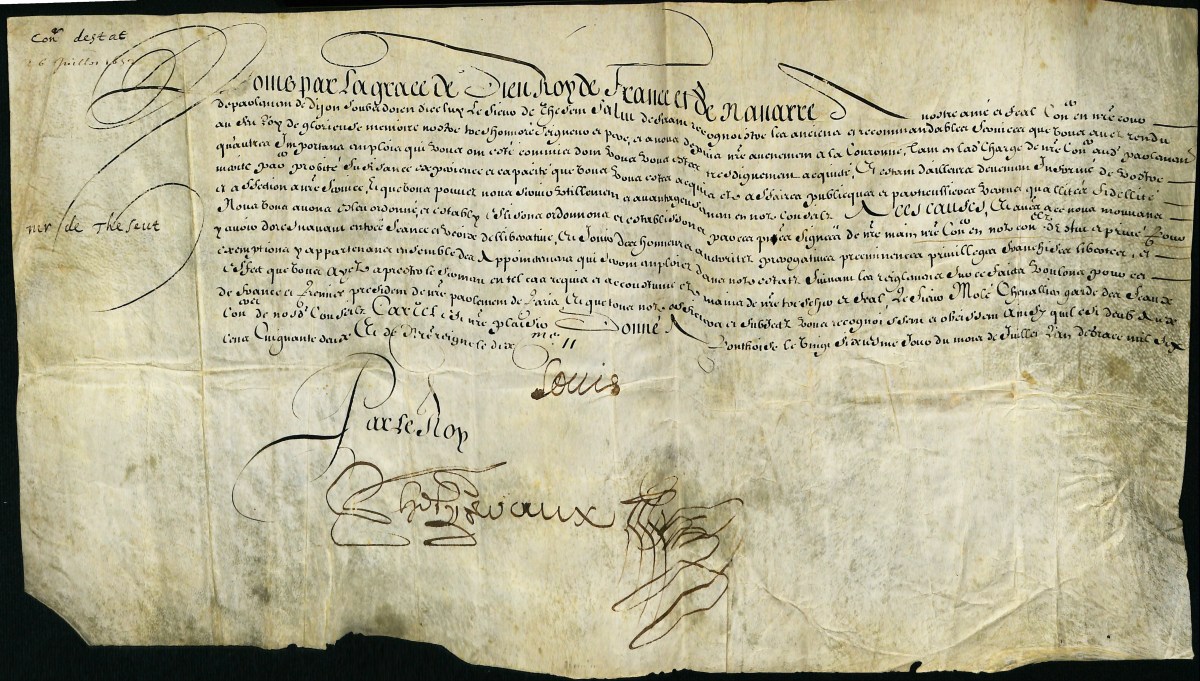 Con.er destat
26 Juillet 1652
Louis par La grace de Dieu Roy de France et de Navarre A nostre amé et feal Con.er en nre cour
de parlement de Dijon Le Sieur de Theseut Salut desirans recognoistre les anciens et recommandables services que vous avez rendu
au feu Roy de glorieuse memoire nostre tres honnoré seigneur et pere, et a nous depuis nre avenement a la Couronne, tant en lad. Charge de nre Con.er aud. parlement
qu'autres Importans emplois qui vous ont esté commis dont vous vous estes tres dignement acquitté, Et estant dailleurs deuement Informé de vostre
probité suffisance experience et capacité que vous vous estes acquis es affaires publicques et particullieres fidellité
et affection a nre service, Et que vous pouvez nous servir utillement et avantageusement en noz Conseilz A ces causes, Et autres a ce nous mouvans
Nous vous avons ordonné et estably Et ordonnons et establissons par ces pntes signées de nre main nre Con.er en noz con.ls destat et privé Pour
y avoir doresnavant entrée seance et voix deliberative, Et Jouir des honneurs auctoritez prerogatives preeminences privilleges franchises libertez, et
exemptions y appartenans ensemble des Appointemens qui seront employez dans noz estatz suivant les reglemens sur ce faitz voulons pour cet
Effect que vous Ayez a prester le serment en tel cas requis et accoustumé es mains de nre tres cher et feal, Le Sieur Molé Chevallier garde des Sceaux
de France et Premier president de nre parlement de Paris, Et que tous noz officiers et subjectz vous recognoissent et obeissent Ainsy quil est deub
Con.er de nosd. Conseilz Car tel est nre plaisir Donné A Ponthoise le vingt sixiesme Jour du mois de Juillet Lan de grace mil six
Cens Cinquante deux Et de nre reigne le dix me
mr de Theseut
Louis
Par Le Roy